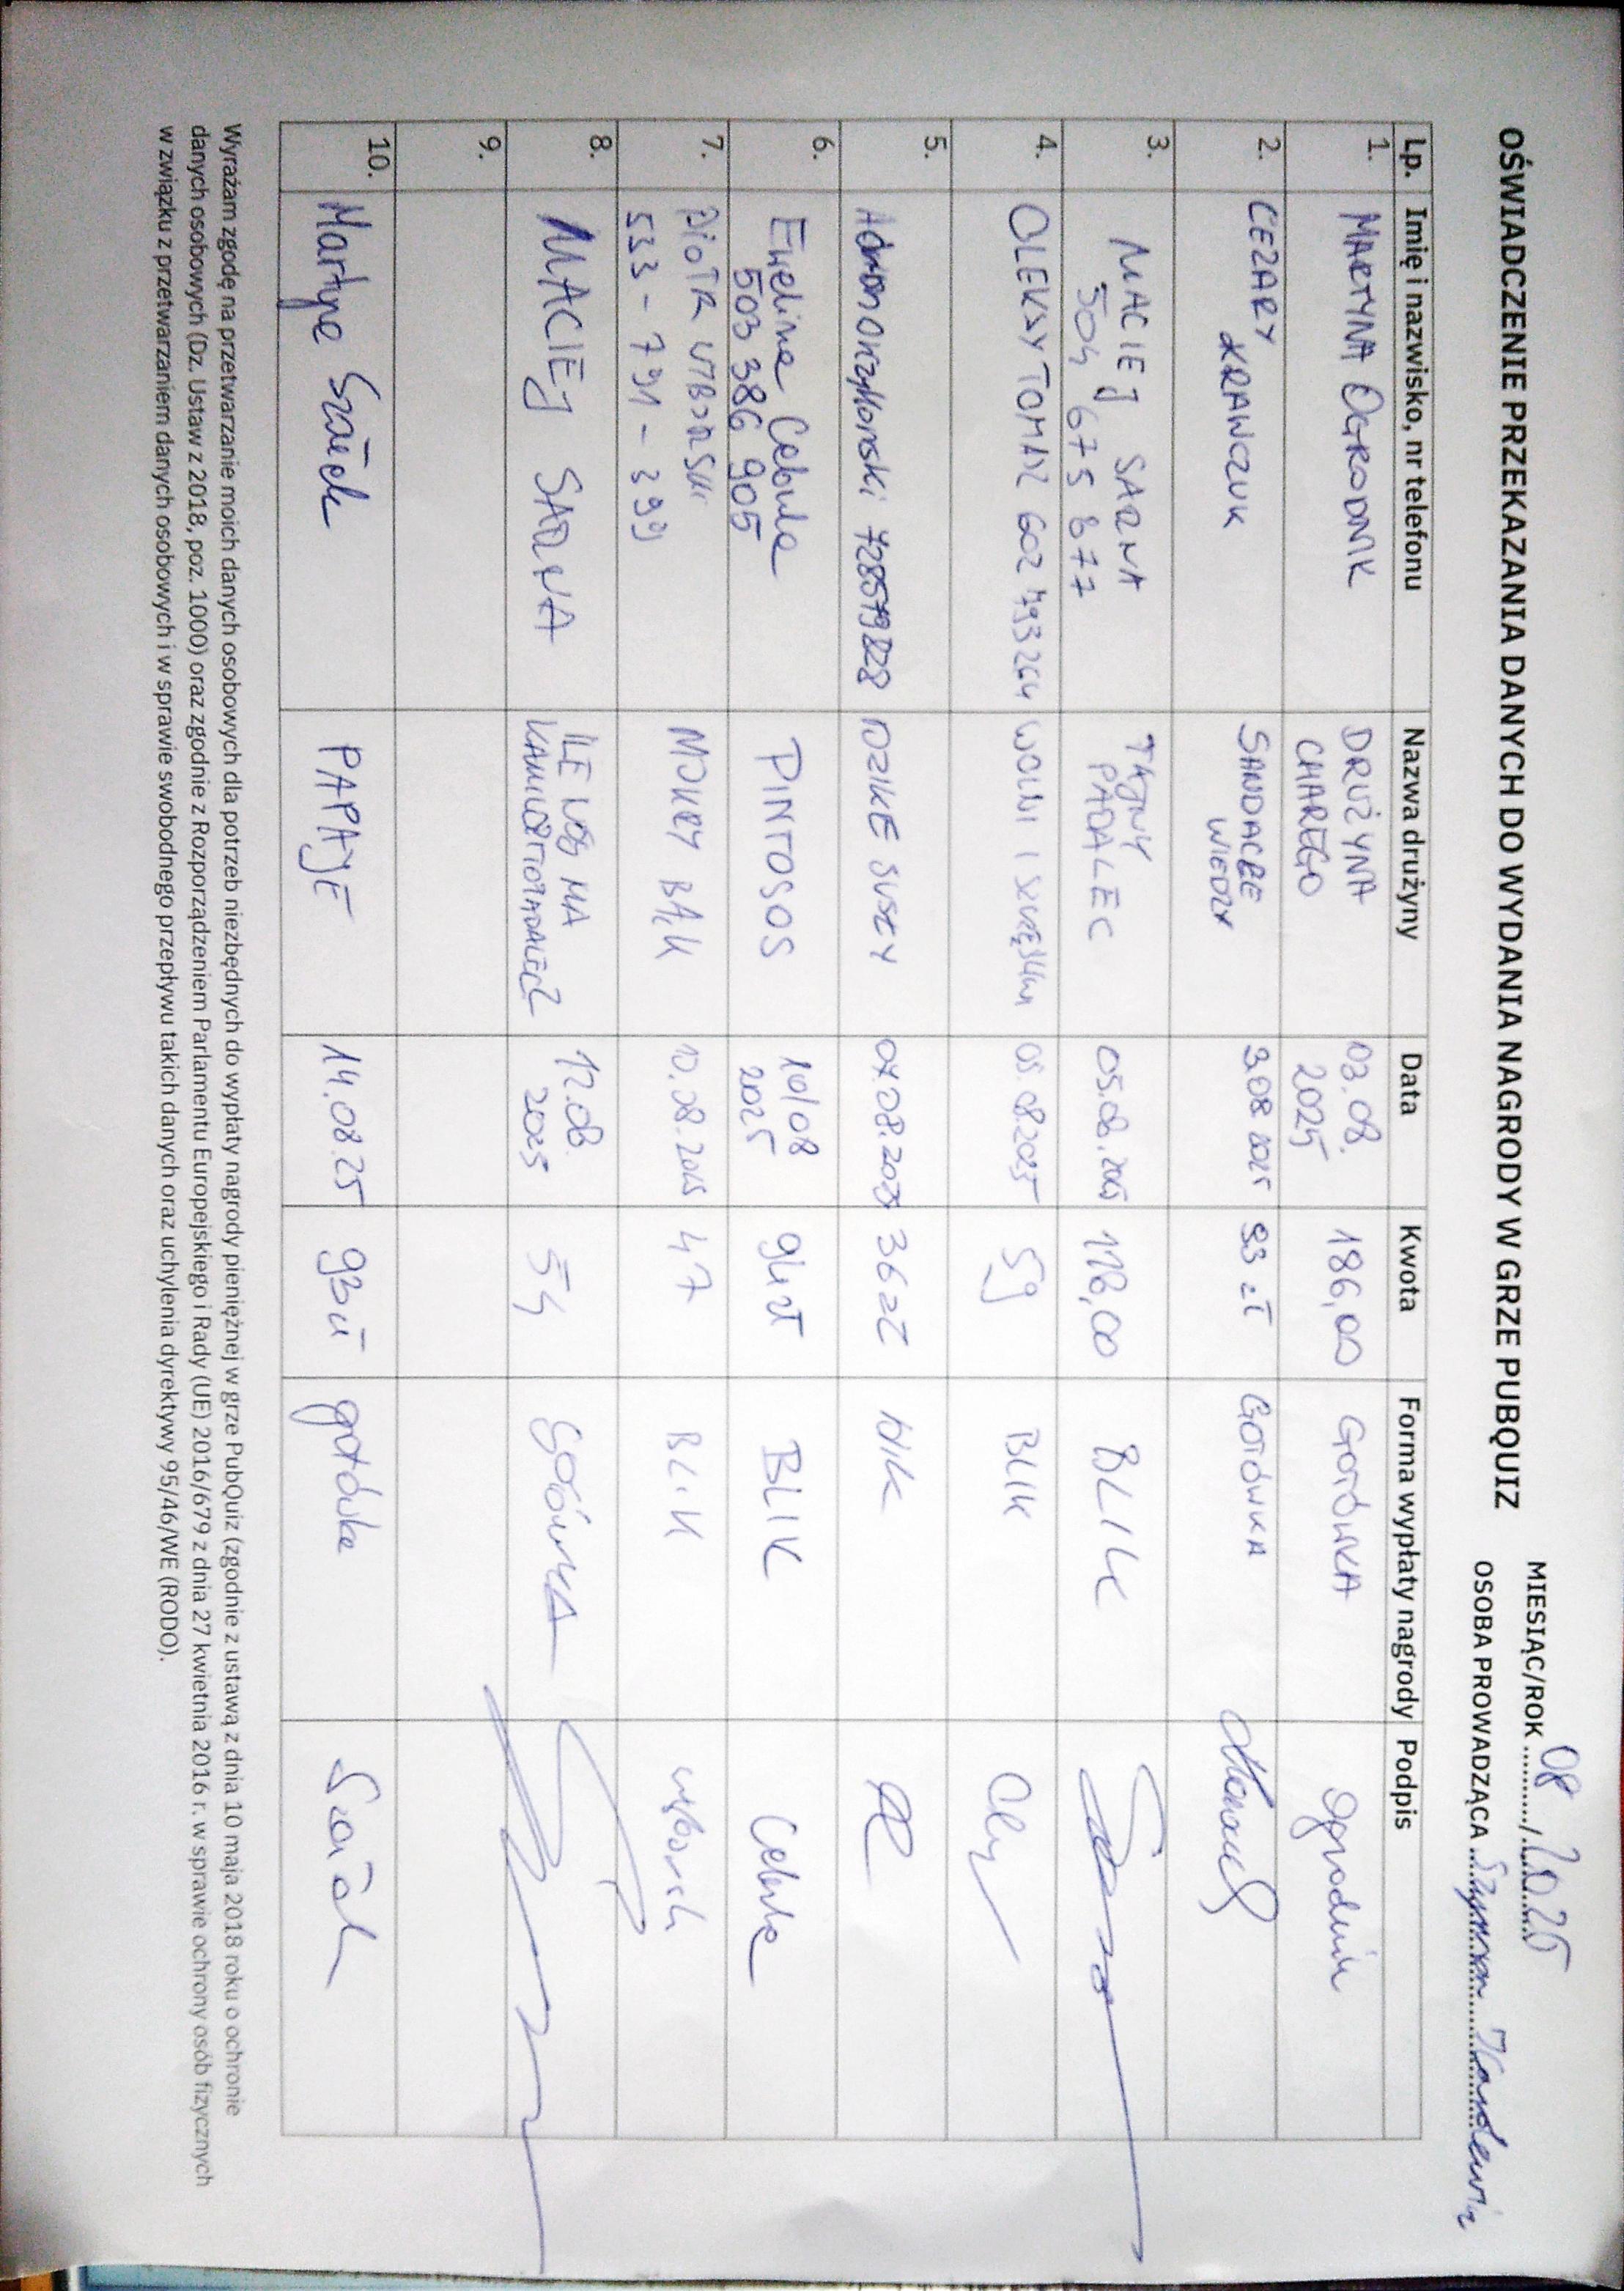 OŚWIADCZENIE PRZEKAZANIA DANYCH DO WYDANIA NAGRODY W GRZE PUBQUIZ
MIESIĄC/ROK 08 / 2025
OSOBA PROWADZĄCA Szymon
Lp. Imię i nazwisko, nr telefonu Nazwa drużyny Data Kwota Forma wypłaty nagrody Podpis
1. MARTYNA OGRODNIK DRUŻYNA CHAREGO 03.08. 2025 186,00 GOTÓWKA Ogrodnik
2. CEZARY KRAWCZUK SANDACZE WIEDZY 3.08.2025 93 zł GOTÓWKA
3. MACIEJ SARNA 504 675 877 TAJNY PADALEC 05.08.2025 118,00 BLIK
4. OLEKSY TOMASZ 602 493264 WOLNI I 05.08.2025 59 BLIK
5. DZIKIE SUSZY 07.08.2025 36 zł blik
6. Ewelina Cebula 503 386 905 PINTOSOS 10/08 2025 94 zł BLIK Cebula
7. PIOTR 533-791-399 MOKRY BĄK 10.08.2025 47 BLIK
8. MACIEJ SARNA ILE NÓG MA 12.08. 2025 54 GOTÓWKA
9.
10. Martyna PAPAJE 14.08.25 93 zł gotówka
Wyrażam zgodę na przetwarzanie moich danych osobowych dla potrzeb niezbędnych do wypłaty nagrody pieniężnej w grze PubQuiz (zgodnie z ustawą z dnia 10 maja 2018 roku o ochronie
danych osobowych (Dz. Ustaw z 2018, poz. 1000) oraz zgodnie z Rozporządzeniem Parlamentu Europejskiego i Rady (UE) 2016/679 z dnia 27 kwietnia 2016 r. w sprawie ochrony osób fizycznych
w związku z przetwarzaniem danych osobowych i w sprawie swobodnego przepływu takich danych oraz uchylenia dyrektywy 95/46/WE (RODO).